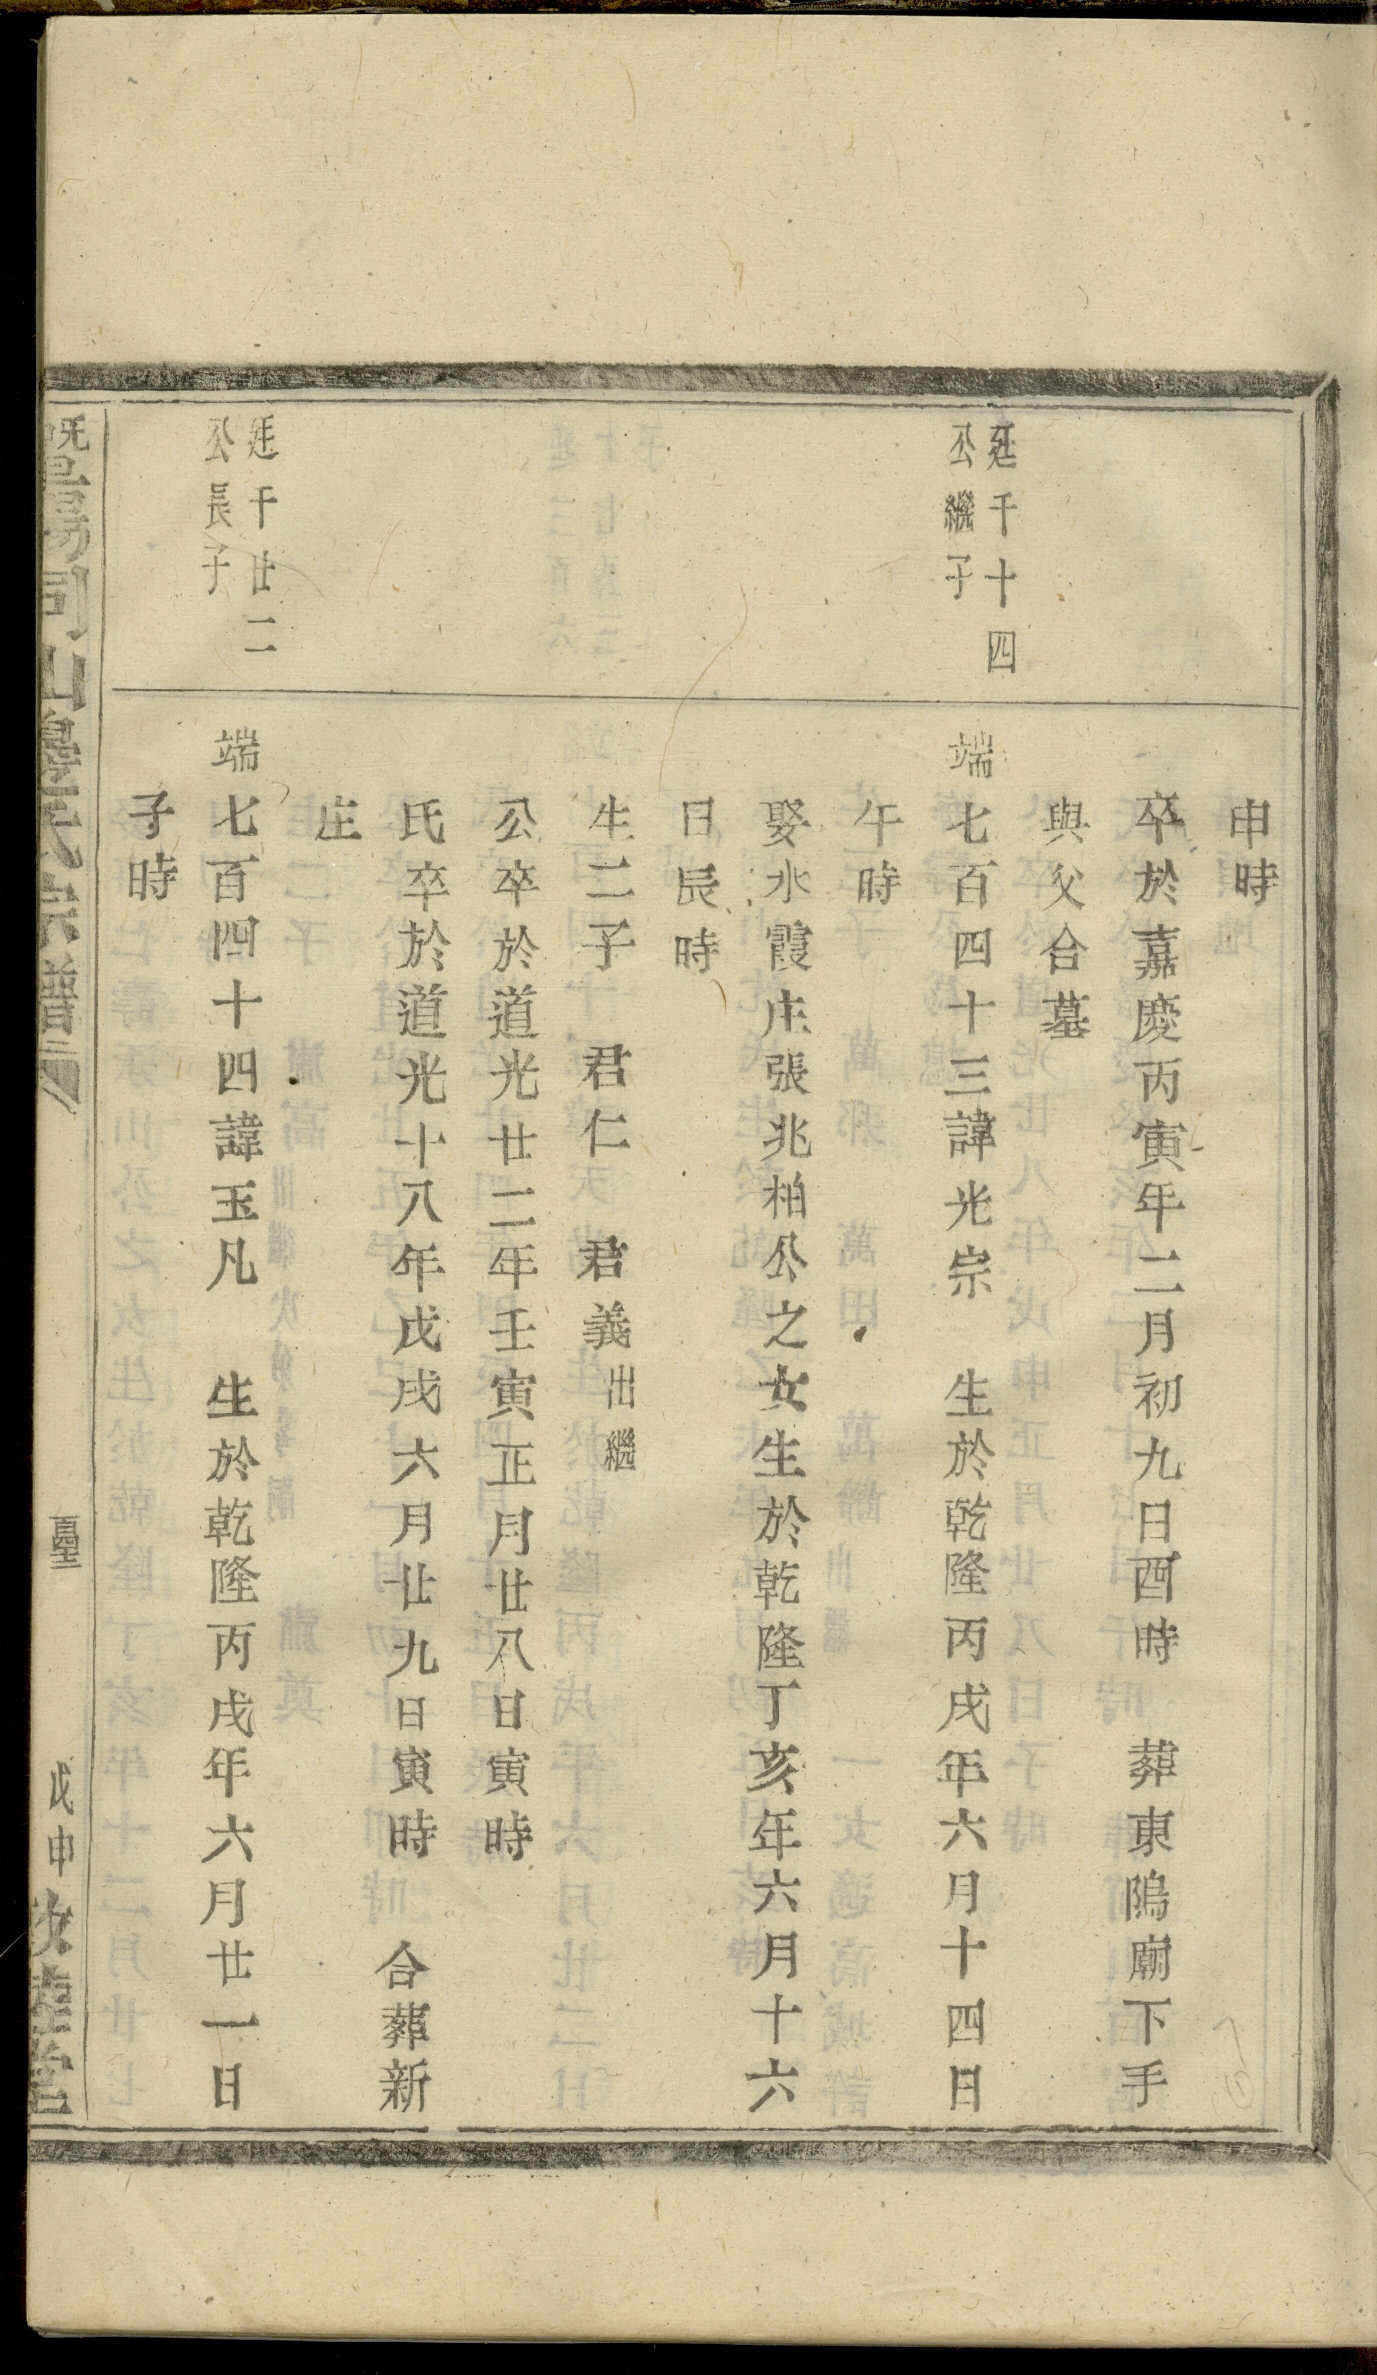 申時
卒於嘉慶丙寅年二月初九日酉時　葬東隖廟下手
與父合墓
廷千十四
公繼子
端七百四十三諱光宗　生於乾隆丙戌年六月十四日
午時
娶水霞庄張兆柏公之女生於乾隆丁亥年六月十六
日辰時
生二子　君仁　君義出繼
公卒於道光廿二年壬寅正月廿八日寅時
氏卒於道光十八年戊戌六月廿九日寅時　合葬新
庄
廷千廿二
公長子
端七百四十四諱玉凡　生於乾隆丙戌年六月廿一日
子時
暨陽同山邊氏宗譜
戊申 敦睦堂